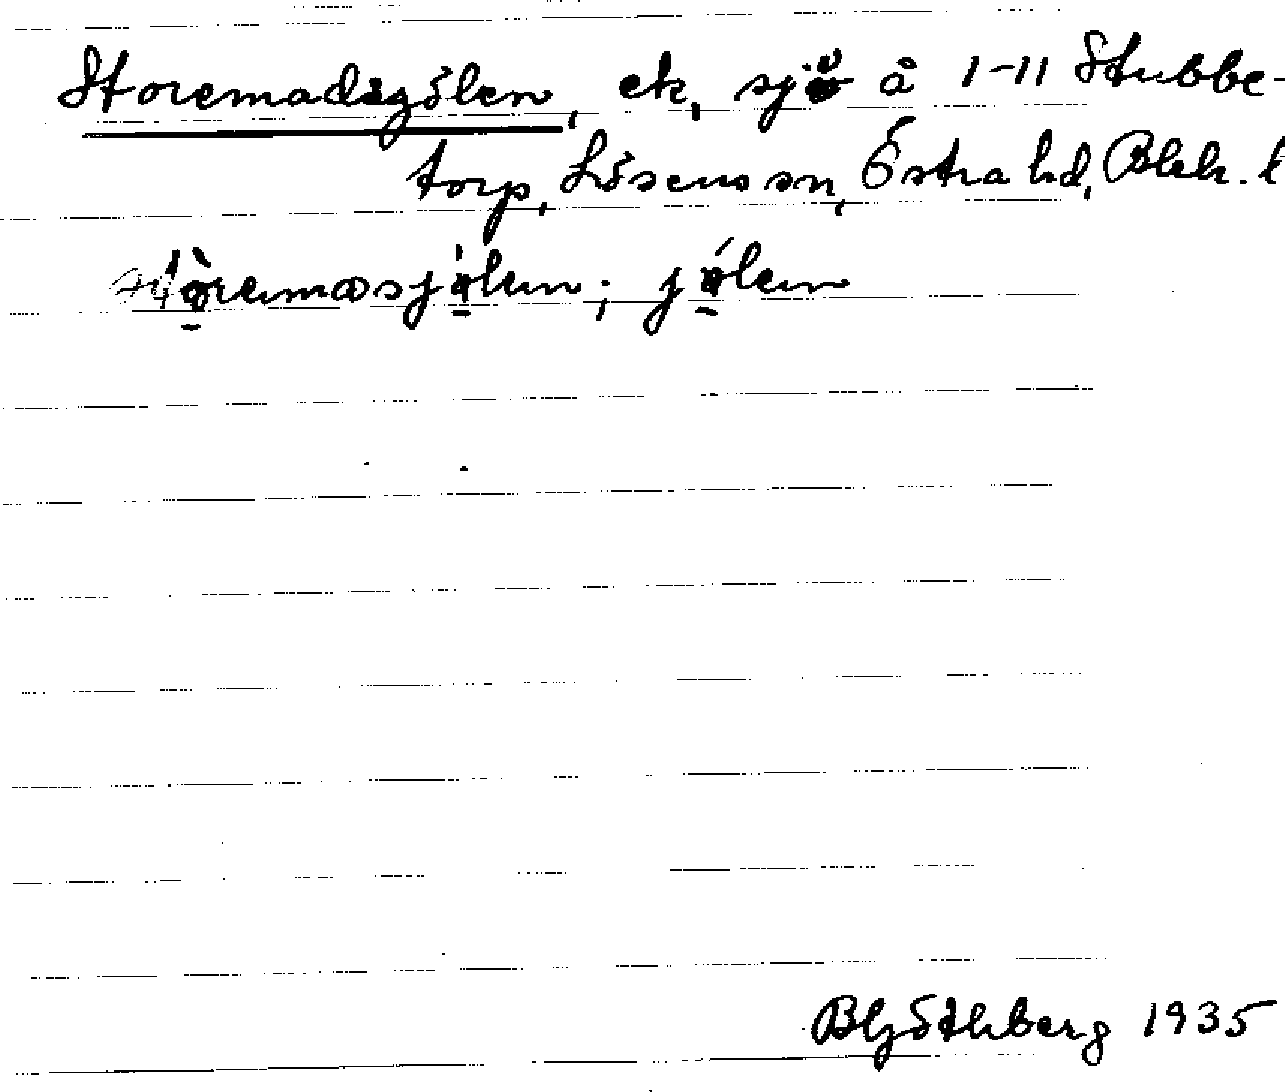 Storemadsgölen, ek, sjö å 1-11 Stubbe-
torp, Lösens sn, Östra hd, Blek. l
stòremasjǫ́len; jǫ́len
Bj Göthberg 1935